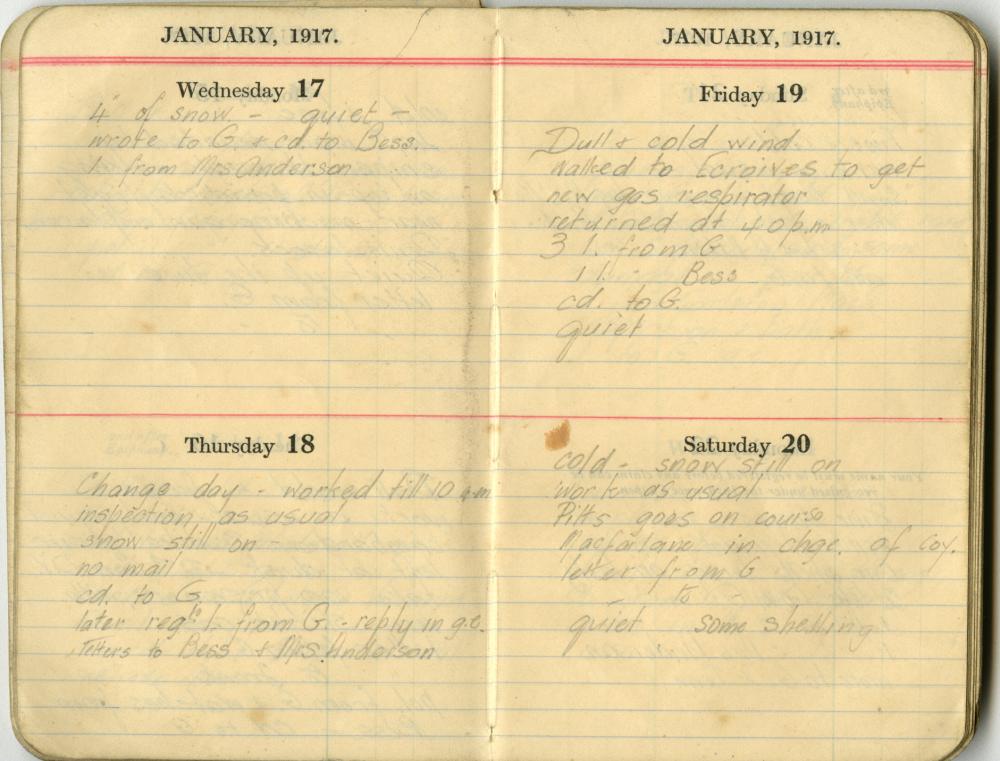 JANUARY, 1917.
Wednesday 17
4" of snow - quiet -
wrote to G. & cd. to Bess.
1. from Mrs Anderson
Thursday 18
Change day - worked till 10 a.m
inspection as usual
snow still on -
no mail
cd. to G.
later 1. from G. - reply in g.e.
letters to Bess & Mrs. Anderson
JANUARY, 1917.
Friday 19
Dull & cold wind.
walked to Ecroives to get
new gas respirator
returned at 4 0 p.m
3 l. from G
1 l. " Bess
cd. to G.
quiet
Saturday 20
cold - snow still on
work as usual
Pitts goes on course
Macfarlane in chge. of Coy.
letter from G
" to "
quiet some shelling